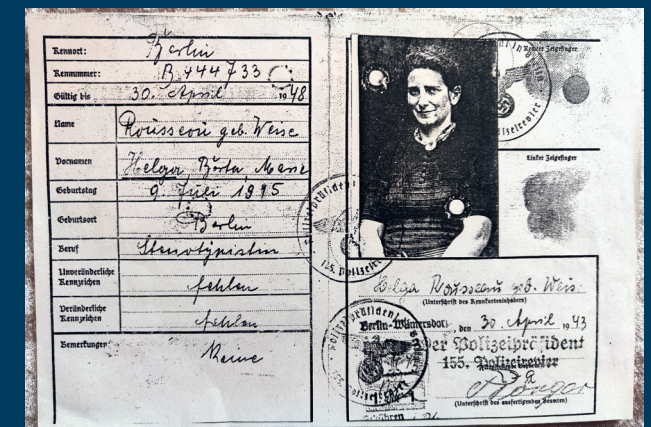 Kennort: Berlin
Kennummer: B 444733
Gültig bis 30. April 1948
Name Rousseau geb. Weise
Vornamen Helga Berta Marie
Geburtstag 9. Juli 1915
Geburtsort Berlin
Beruf Stenotypistin
Unveränderliche Kennzeichen fehlen
Veränderliche Kennzeichen fehlen
Bemerkungen: Keine
Rechter Zeigefinger
Polizeirevier
Linker Zeigefinger
Helga Rousseau geb. Weise
(Unterschrift des Kennkarteninhabers)
Berlin-Wilmersdorf, den 30. April 1943
Der Polizeipräsident
155. Polizeirevier
(Unterschrift des ausfertigenden Beamten)